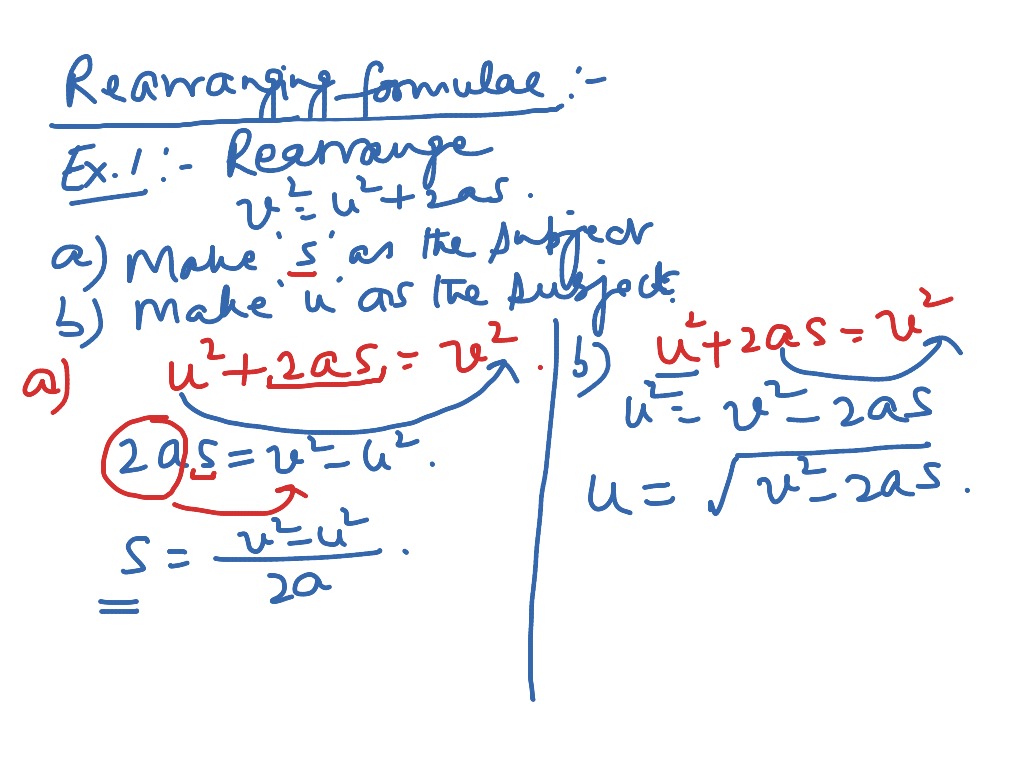 Rearranging formulae :-
Ex. 1 :- Rearrange
v² = u² + 2as.
a) Make 's' as the subject
b) Make 'u' as the subject.
a) u² + 2as = v².
2as = v² - u².
s = \frac{v² - u²}{2a}.
b) u² + 2as = v²
u² = v² - 2as
u = √(v² - 2as).